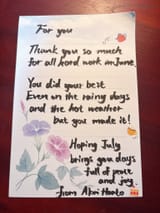 For you
Thank you so much
for all hard work on June.
You did your best
Even on the rainy days
and the hot weather
but you made it!
Hoping July
brings you days
full of peace
and joy.
from Akari